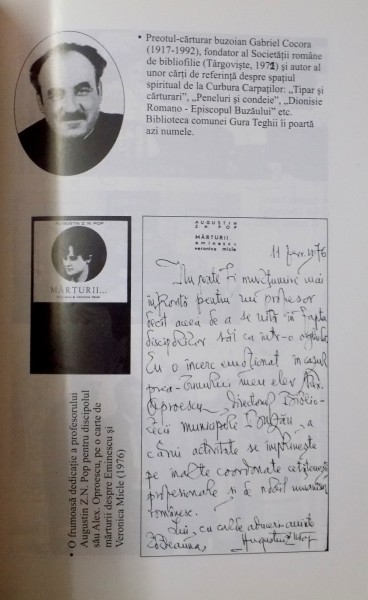 • Preotul-cărturar buzoian Gabriel Cocora
(1917-1992), fondator al Societății române
de bibliofilie (Târgoviște, 1971) și autor al
unor cărți de referință despre spațiul
spiritual de la Curbura Carpaților: „Tipar și
cărturari”, „Peneluri și condeie”, „Dionisie
Romano - Episcopul Buzăului” etc.
Biblioteca comunei Gura Teghii îi poartă
azi numele.
AUGUSTIN Z.N. POP
MĂRTURII...
• O frumoasă dedicație a profesorului
Augustin Z.N. Pop pentru discipolul
său Alex. Oproescu, pe o carte de
mărturii despre Eminescu și
Veronica Micle (1976)
AUGUSTIN
Z.N. POP
MĂRTURII
eminescu
veronica micle
11 febr. 1976
Nu poate fi mulțumire mai
pentru un profesor
decît aceea de a se uita în fapta
discipolilor săi ca într-o oglindă.
Eu o încerc emoționat în cazul
meu elev Alex.
Oproescu, directorul Bibliote-
cii municipale Buzău, a
cărui activitate se împlinește
pe înalte coordonate cetățenești
profesionale și de nobil umanism
românesc.
Lui, cu calde
Augustin Z.N. Pop